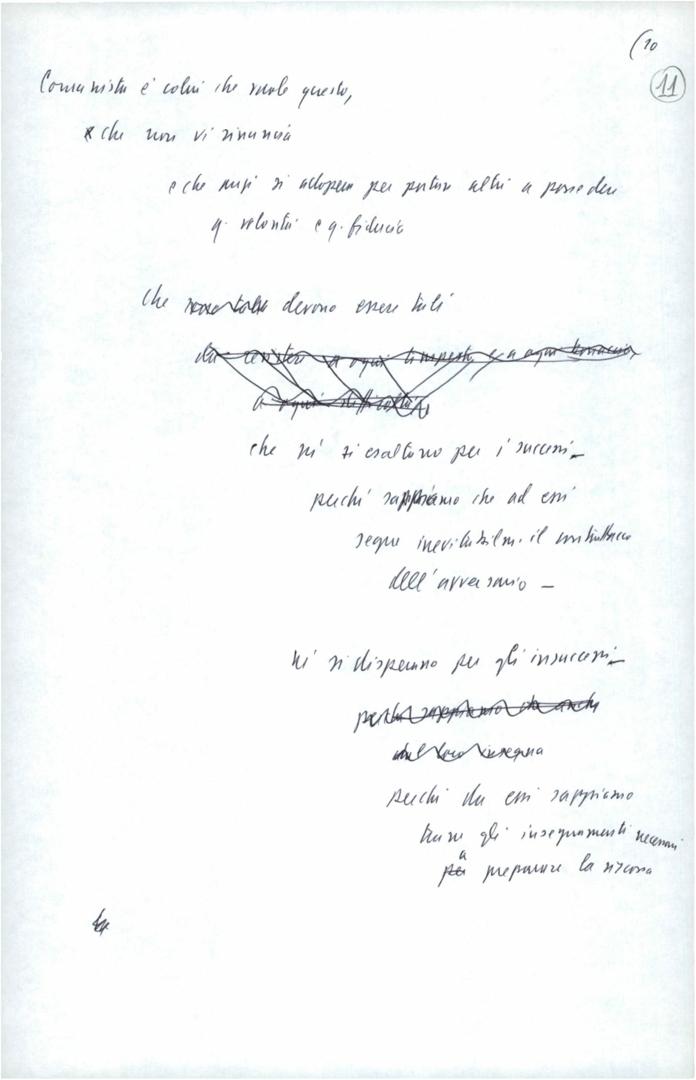 (10
11
Comunista è colui che vuole questo,
che non vi rinuncia
e che anzi si adopera per portare altri a possedere
q. volontà e q. fiducia
che devono essere tali
da resistere a ogni tempesta e a ogni bonaccia
a ogni difficoltà
che né si esaltano per i successi –
perché sappiamo che ad essi
segue inevitabilm. il contrattacco
dell'avversario –
né si disperano per gli insuccessi –
perché sappiamo che anche
loro insegna
perché da essi sappiamo
trarre gli insegnamenti necessari
per a preparare la riscossa